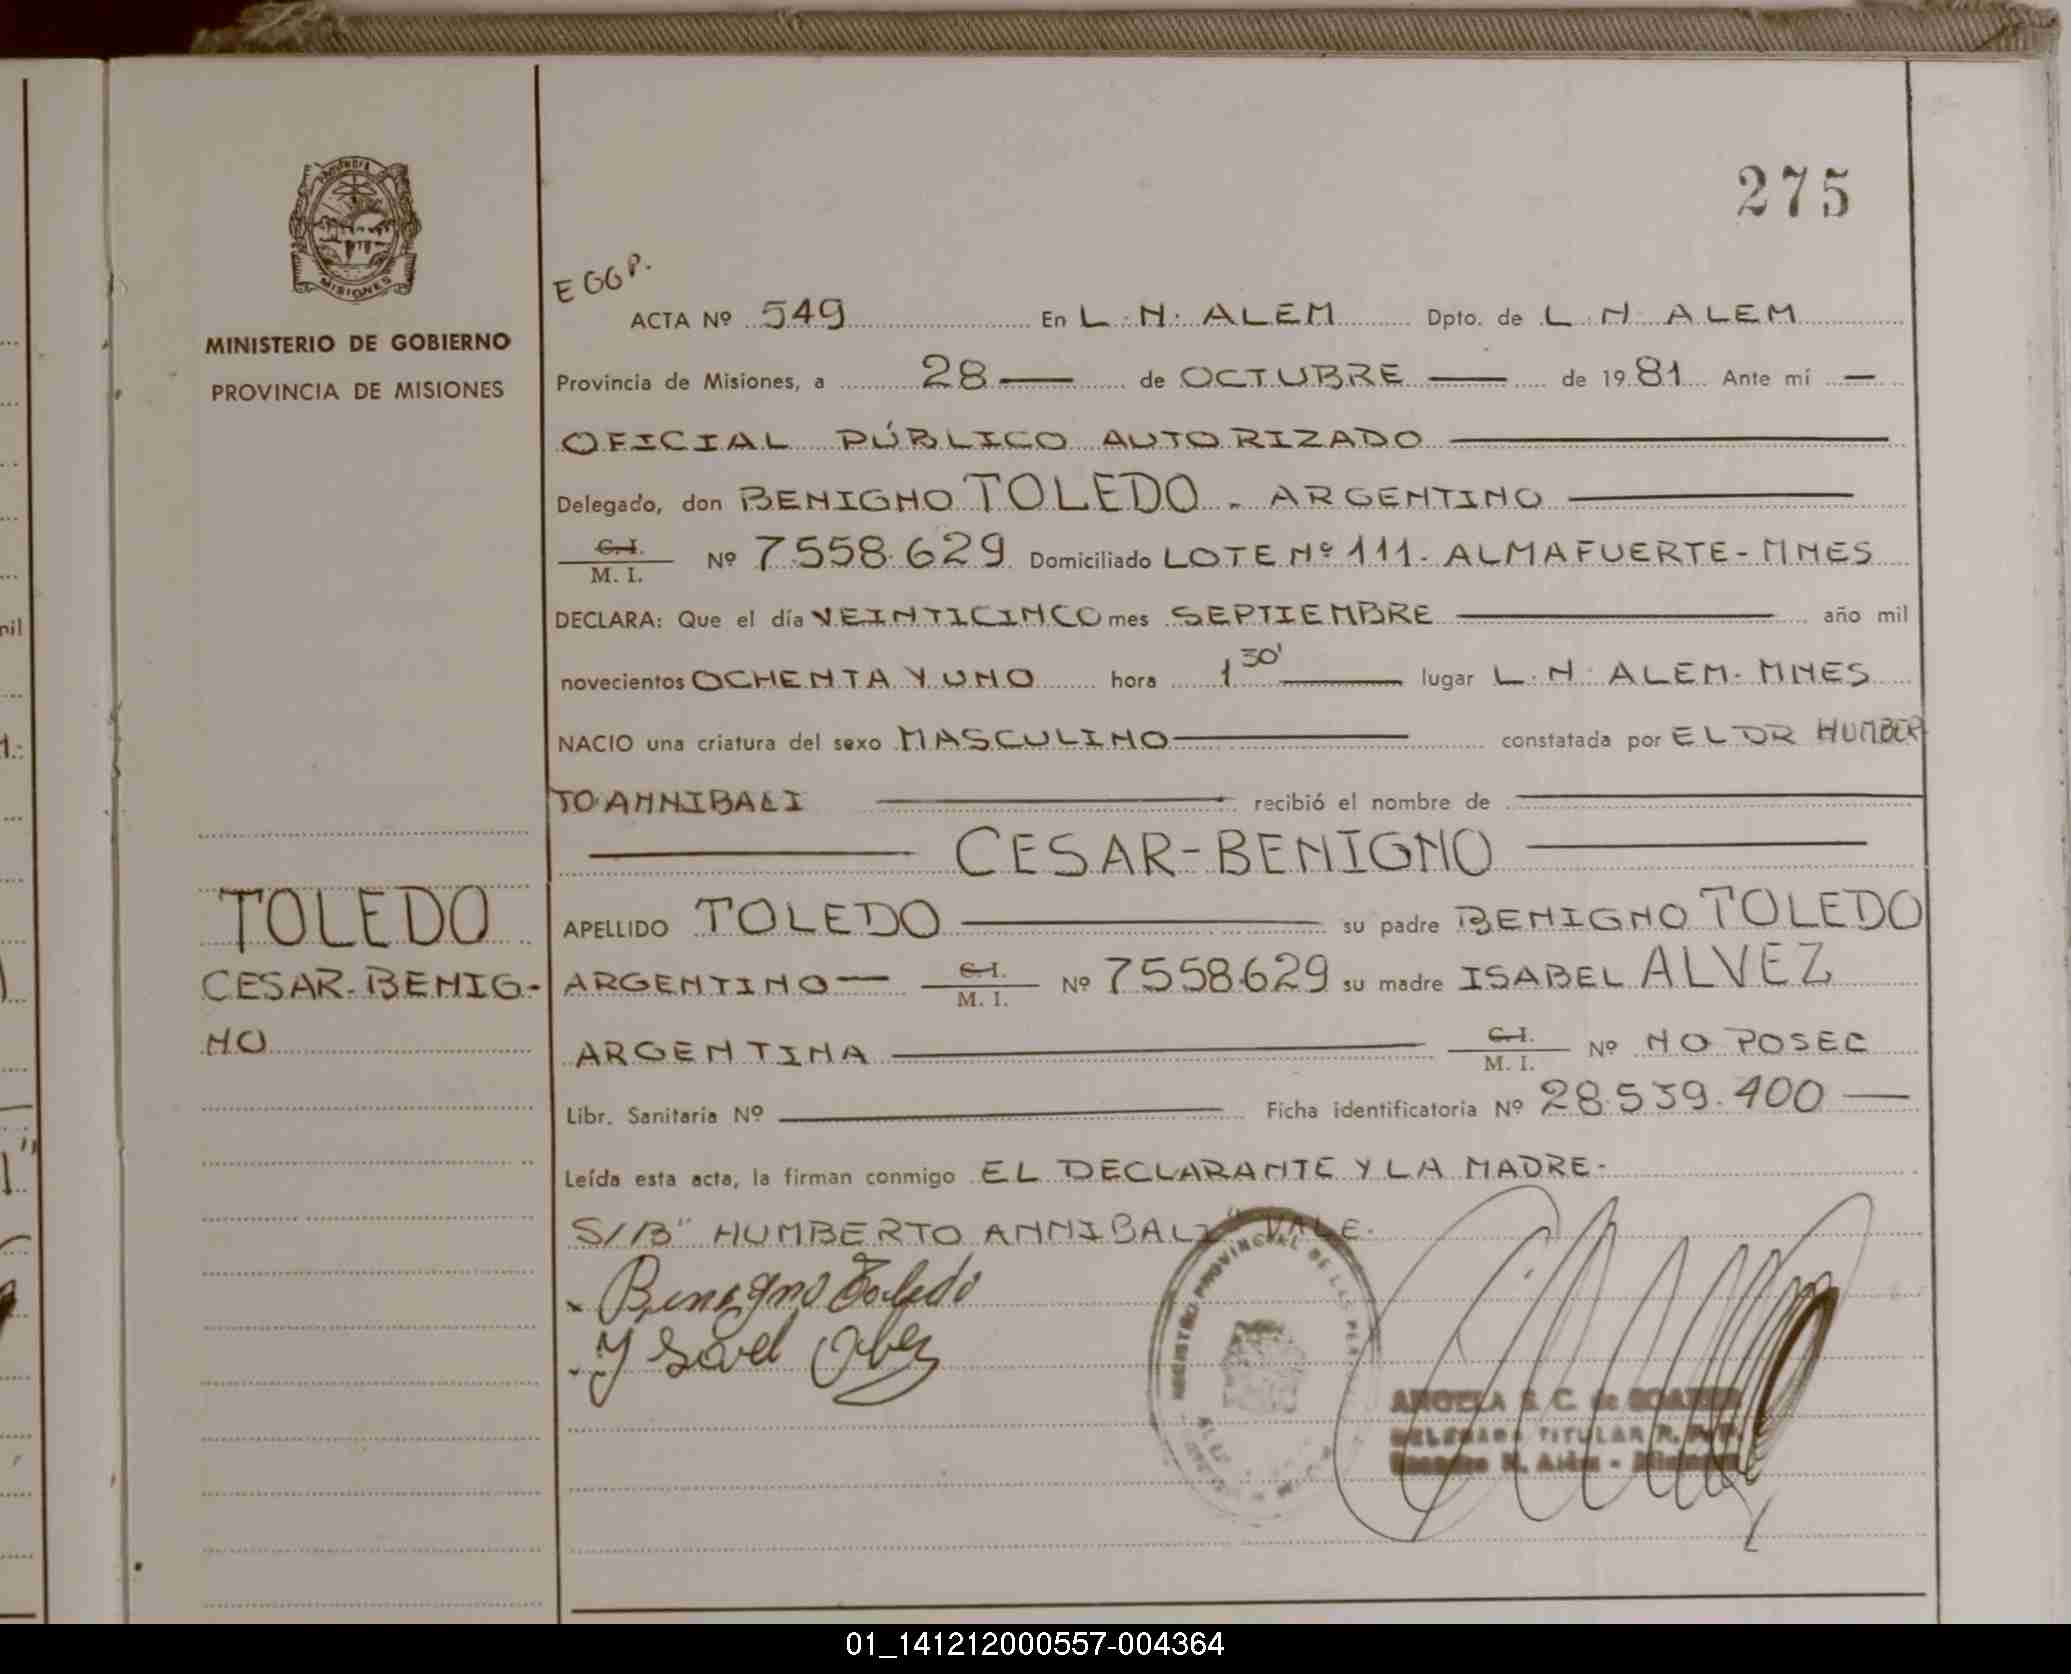 275
E GGP.
PROVINCIA
MISIONES
MINISTERIO DE GOBIERNO
PROVINCIA DE MISIONES
ACTA Nº 549 En L. N. ALEM Dpto. de L. N. ALEM
Provincia de Misiones, a 28 de OCTUBRE de 1981 Ante mí
OFICIAL PÚBLICO AUTORIZADO
Delegado, don BENIGNO TOLEDO - ARGENTINO
C. I.
M. I. Nº 7.558.629 Domiciliado LOTE Nº 111 - ALMAFUERTE - MNES
DECLARA: Que el día VEINTICINCO mes SEPTIEMBRE año mil
novecientos OCHENTA Y UNO hora 1 30' lugar L. N. ALEM - MNES
NACIO una criatura del sexo MASCULINO constatada por EL DR HUMBER
TO ANNIBALI recibió el nombre de
CESAR-BENIGNO
TOLEDO
CESAR-BENIG-
NO
APELLIDO TOLEDO su padre BENIGNO TOLEDO
ARGENTINO C. I.
M. I. Nº 7.558.629 su madre ISABEL ALVEZ
ARGENTINA C. I.
M. I. Nº NO POSEE
Libr. Sanitaria Nº Ficha identificatoria Nº 28.539.400
Leída esta acta, la firman conmigo EL DECLARANTE Y LA MADRE-
S/B" HUMBERTO ANNIBALI" VALE-
Benigno Toledo
REGISTRO PROVINCIAL DE LAS PER
TITULAR R. P. P.
N. Alem - Misiones
01_141212000557-004364